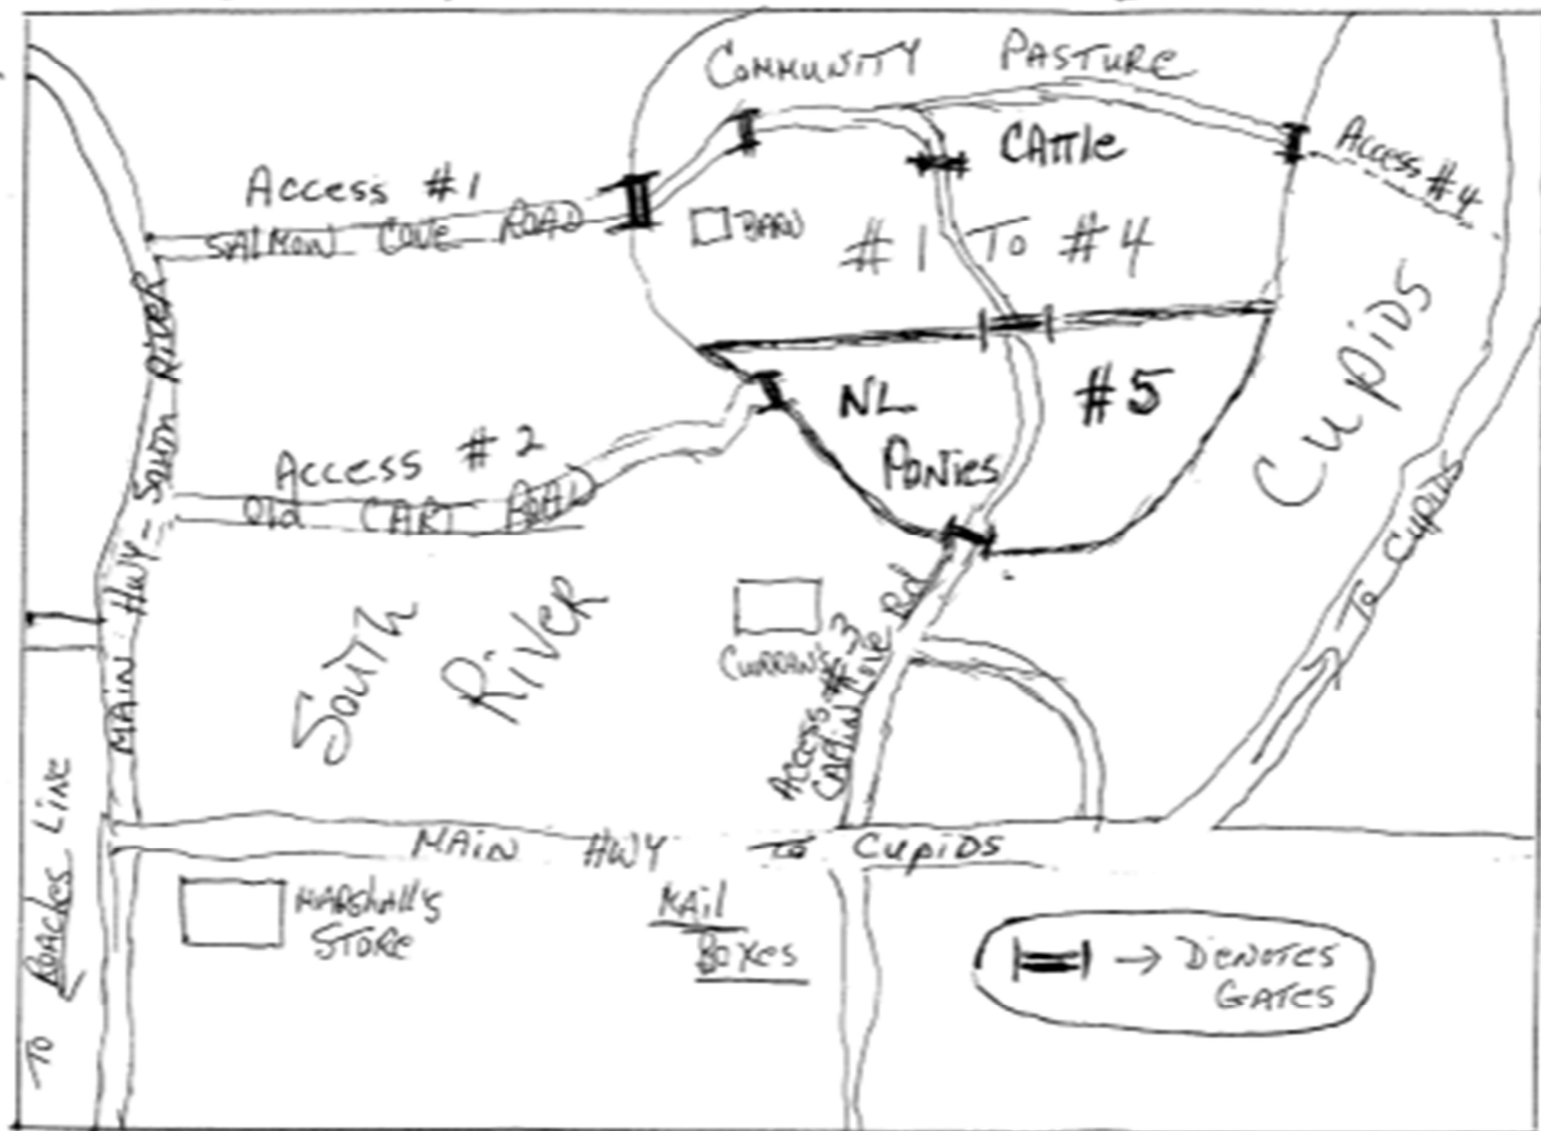 COMMUNITY PASTURE
CATTLE
Access #1
SALMON COVE ROAD
BARN
#1 To #4
Access #4
Cupids
NL
PONIES
#5
Access #2
Old CART ROAD
MAIN HWY - SOUTH RIVER
South
River
CURRAN'S
Access #3
CAPLIN COVE Rd
To Cupids
MAIN HWY To CUPIDS
To ROACHES LINE
MARSHALL'S
STORE
MAIL
BOXES
→ DENOTES
GATES